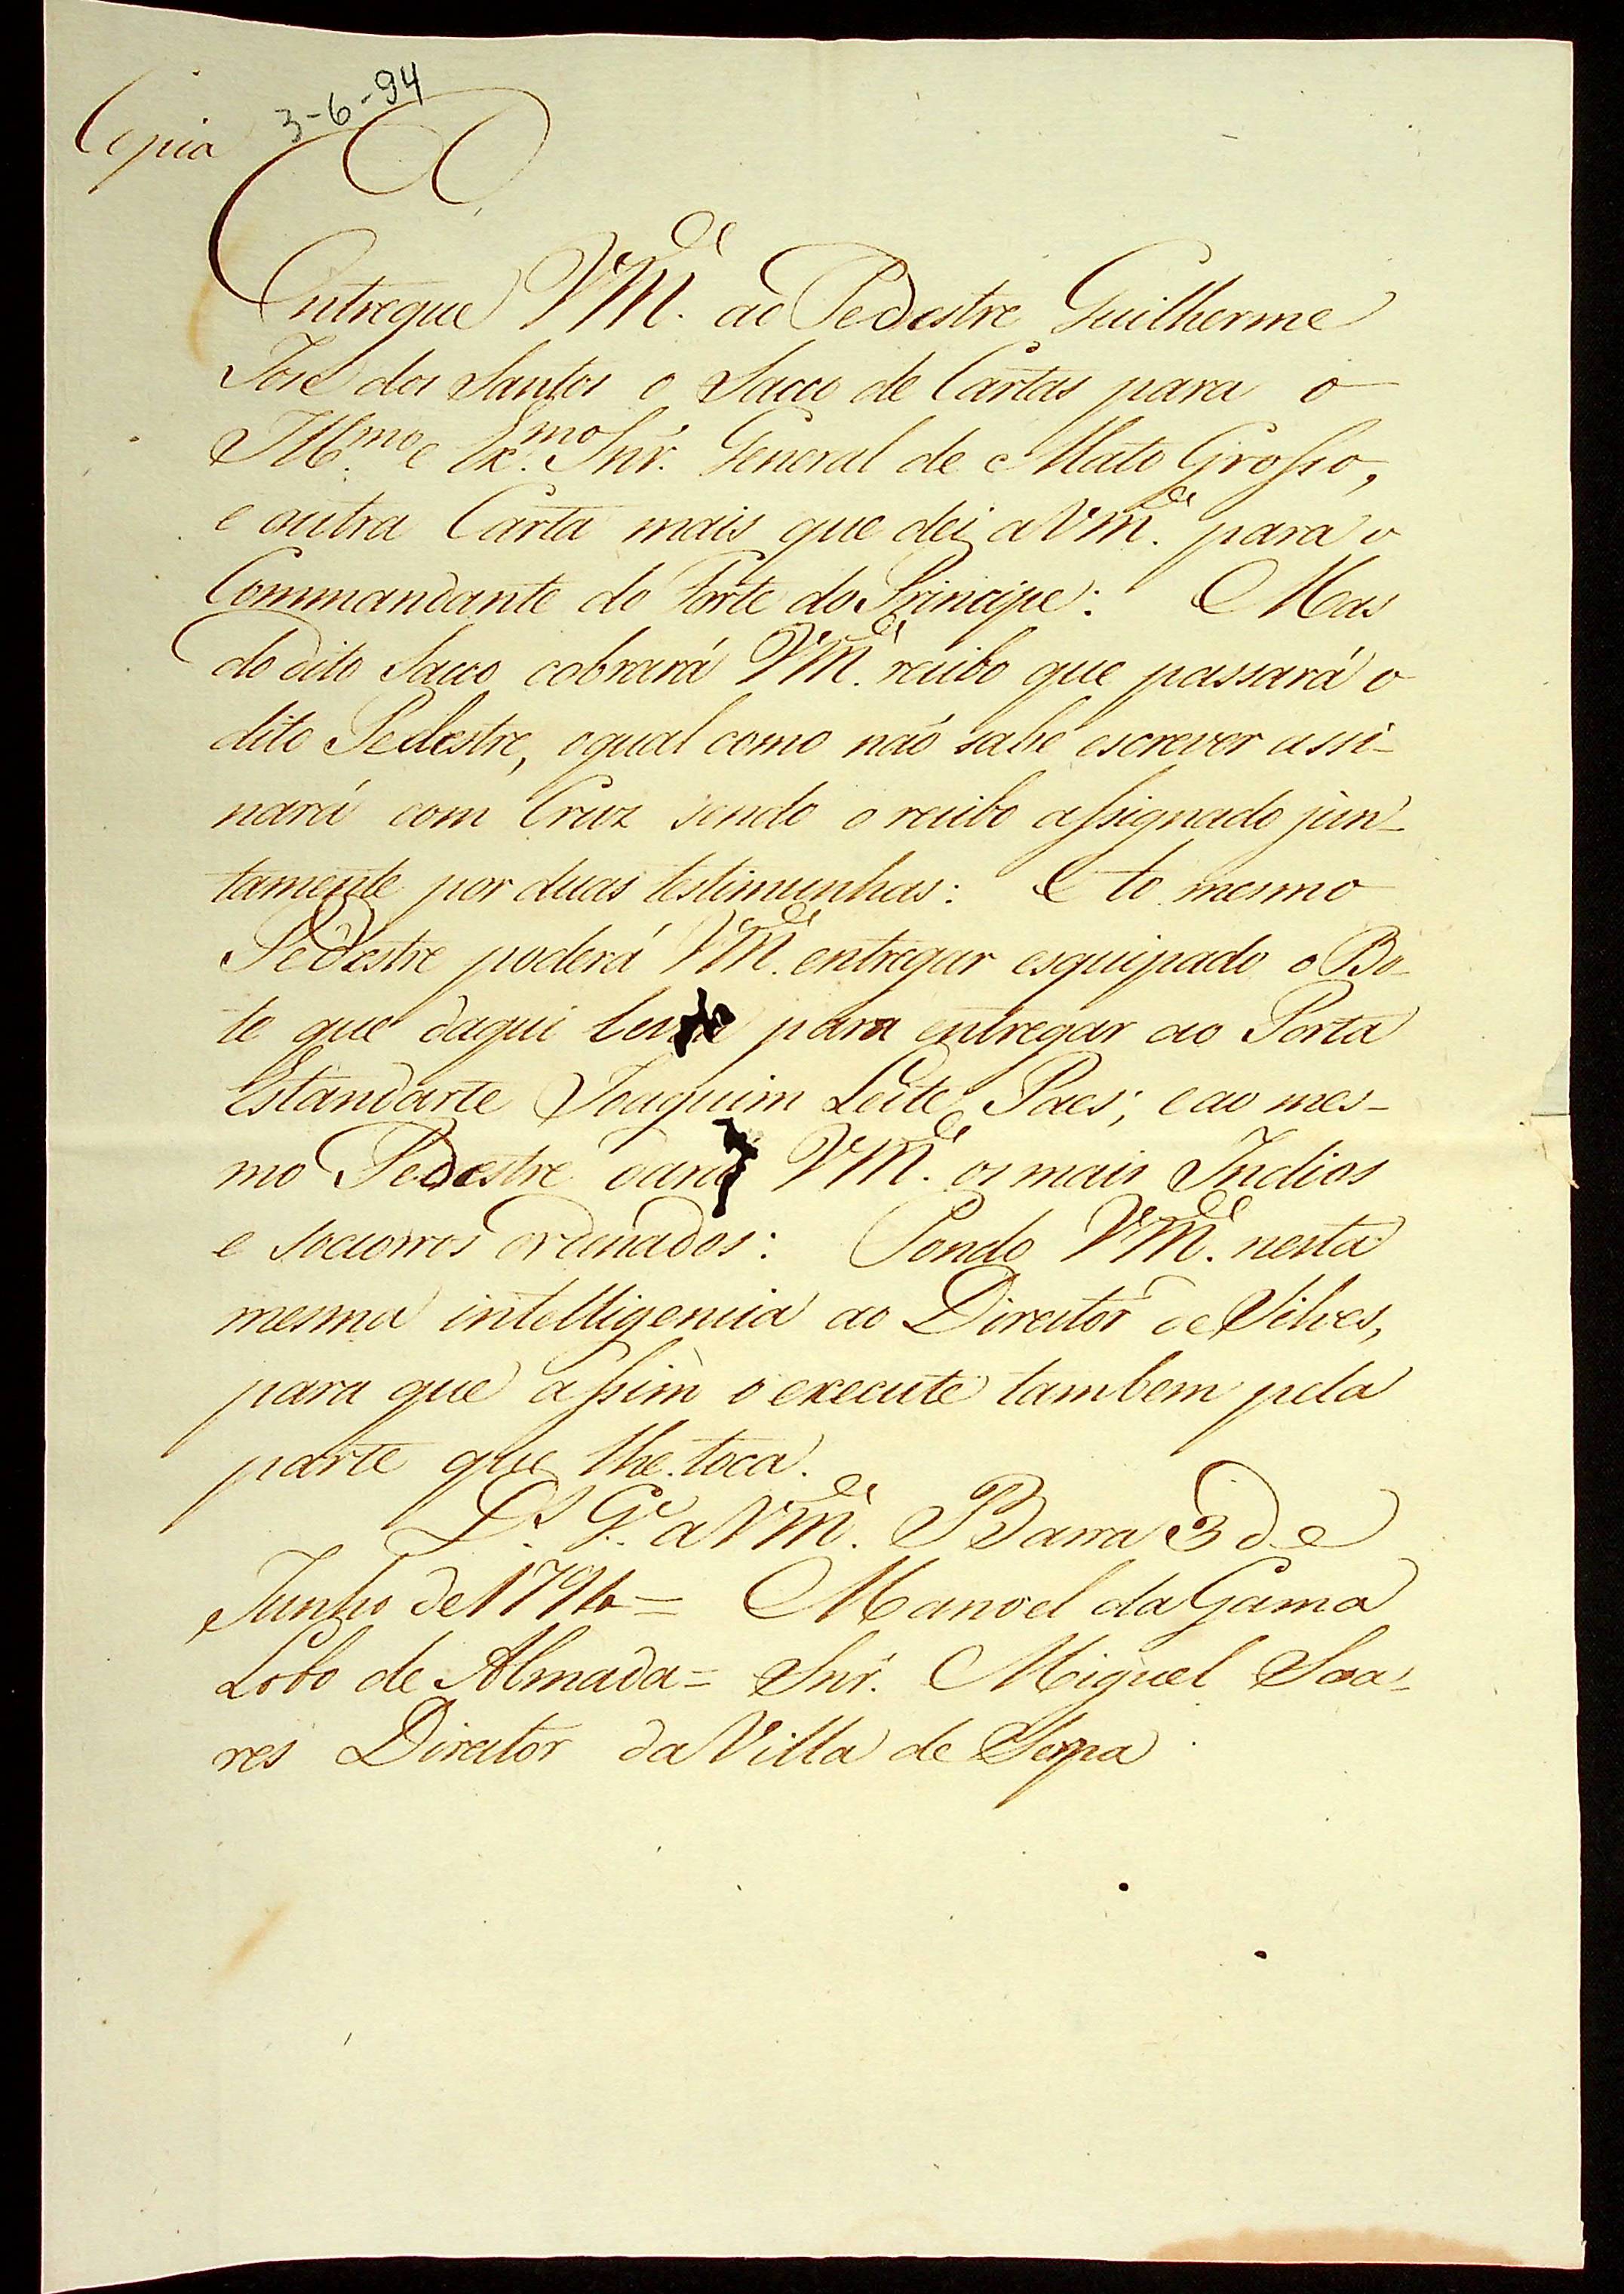 Copia
3-6-94
Entregue VM.ce ao Pedestre Guilherme
Jose dos Santos o Sacco de Cartas para o
Illmo e Exmo Snr. General de Mato Grosso,
e outra Carta mais que dei a VM.ce para o
Commandante do Forte do Principe: Mas
do dito Sacco cobrará VM.ce recibo que passará o
dito Pedestre, o qual como não sabe escrever assi-
nará com Cruz sendo o recibo assignado jun-
tamente por duas testimunhas: E to mesmo
Pedestre poderá VM.ce entregar esquipado o Bo-
te que daqui para entregar ao Porta
Estandarte Joaquim Leite Paes; e ao mes-
mo Pedestre dará VM.ce os mais Indios
e socorros ordenados: Pondo VM.ce nesta
mesma intelligencia ao Director de Silves,
para que assim o execute tambem pela
parte que lhe toca.
Ds. Ge. a VM.ce Barra 3 de
Junho de 1794 = Manoel da Gama
Lobo de Almada = Snr. Miguel Soa-
res Director da Villa de Serpa